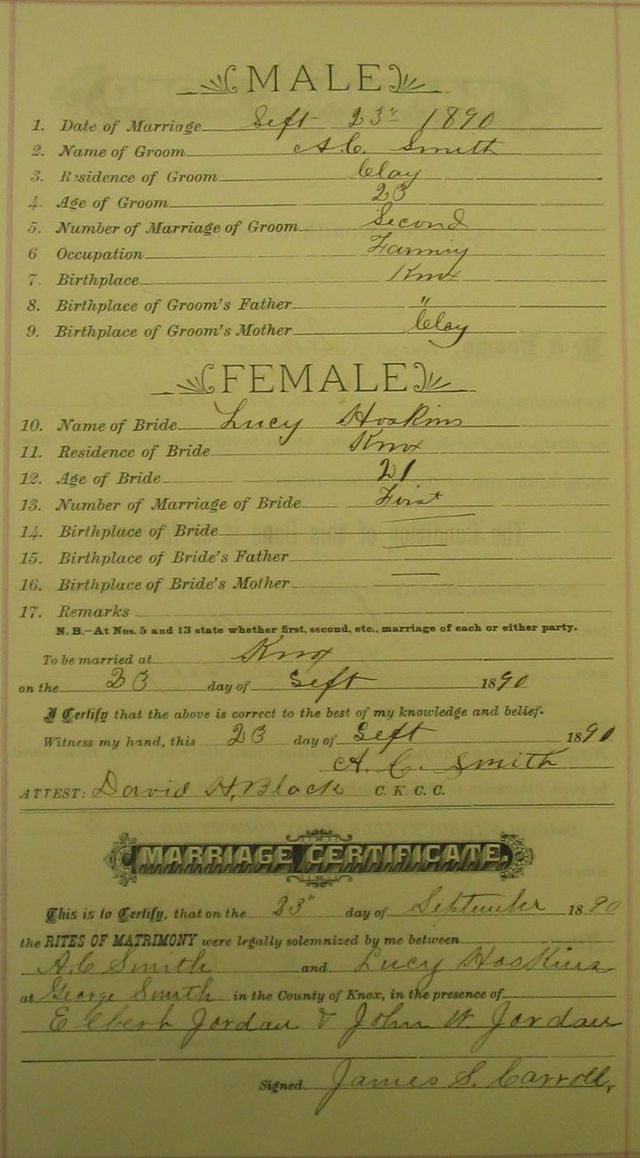 MALE
1. Date of Marriage Sept 23" 1890
2. Name of Groom A.C. Smith
3. Residence of Groom Clay
4. Age of Groom 23
5. Number of Marriage of Groom Second
6 Occupation Farming
7. Birthplace Knox
8. Birthplace of Groom's Father "
9. Birthplace of Groom's Mother Clay
FEMALE
10. Name of Bride Lucy Hoskins
11. Residence of Bride Knox
12. Age of Bride 21
13. Number of Marriage of Bride First
14. Birthplace of Bride
15. Birthplace of Bride's Father
16. Birthplace of Bride's Mother
17. Remarks
N. B.—At Nos. 5 and 13 state whether first, second, etc., marriage of each or either party.
To be married at Knox
on the 23 day of Sept 1890
I Certify that the above is correct to the best of my knowledge and belief.
Witness my hand, this 23 day of Sept 1890
A. C. Smith
ATTEST: David H. Black C. K. C. C.
MARRIAGE CERTIFICATE.
This is to Certify, that on the 23" day of September 1890
the RITES OF MATRIMONY were legally solemnized by me between
A.C Smith and Lucy Hoskins
at George Smith in the County of Knox, in the presence of
Elbert Jordan & John W. Jordan
Signed James S. Carroll,